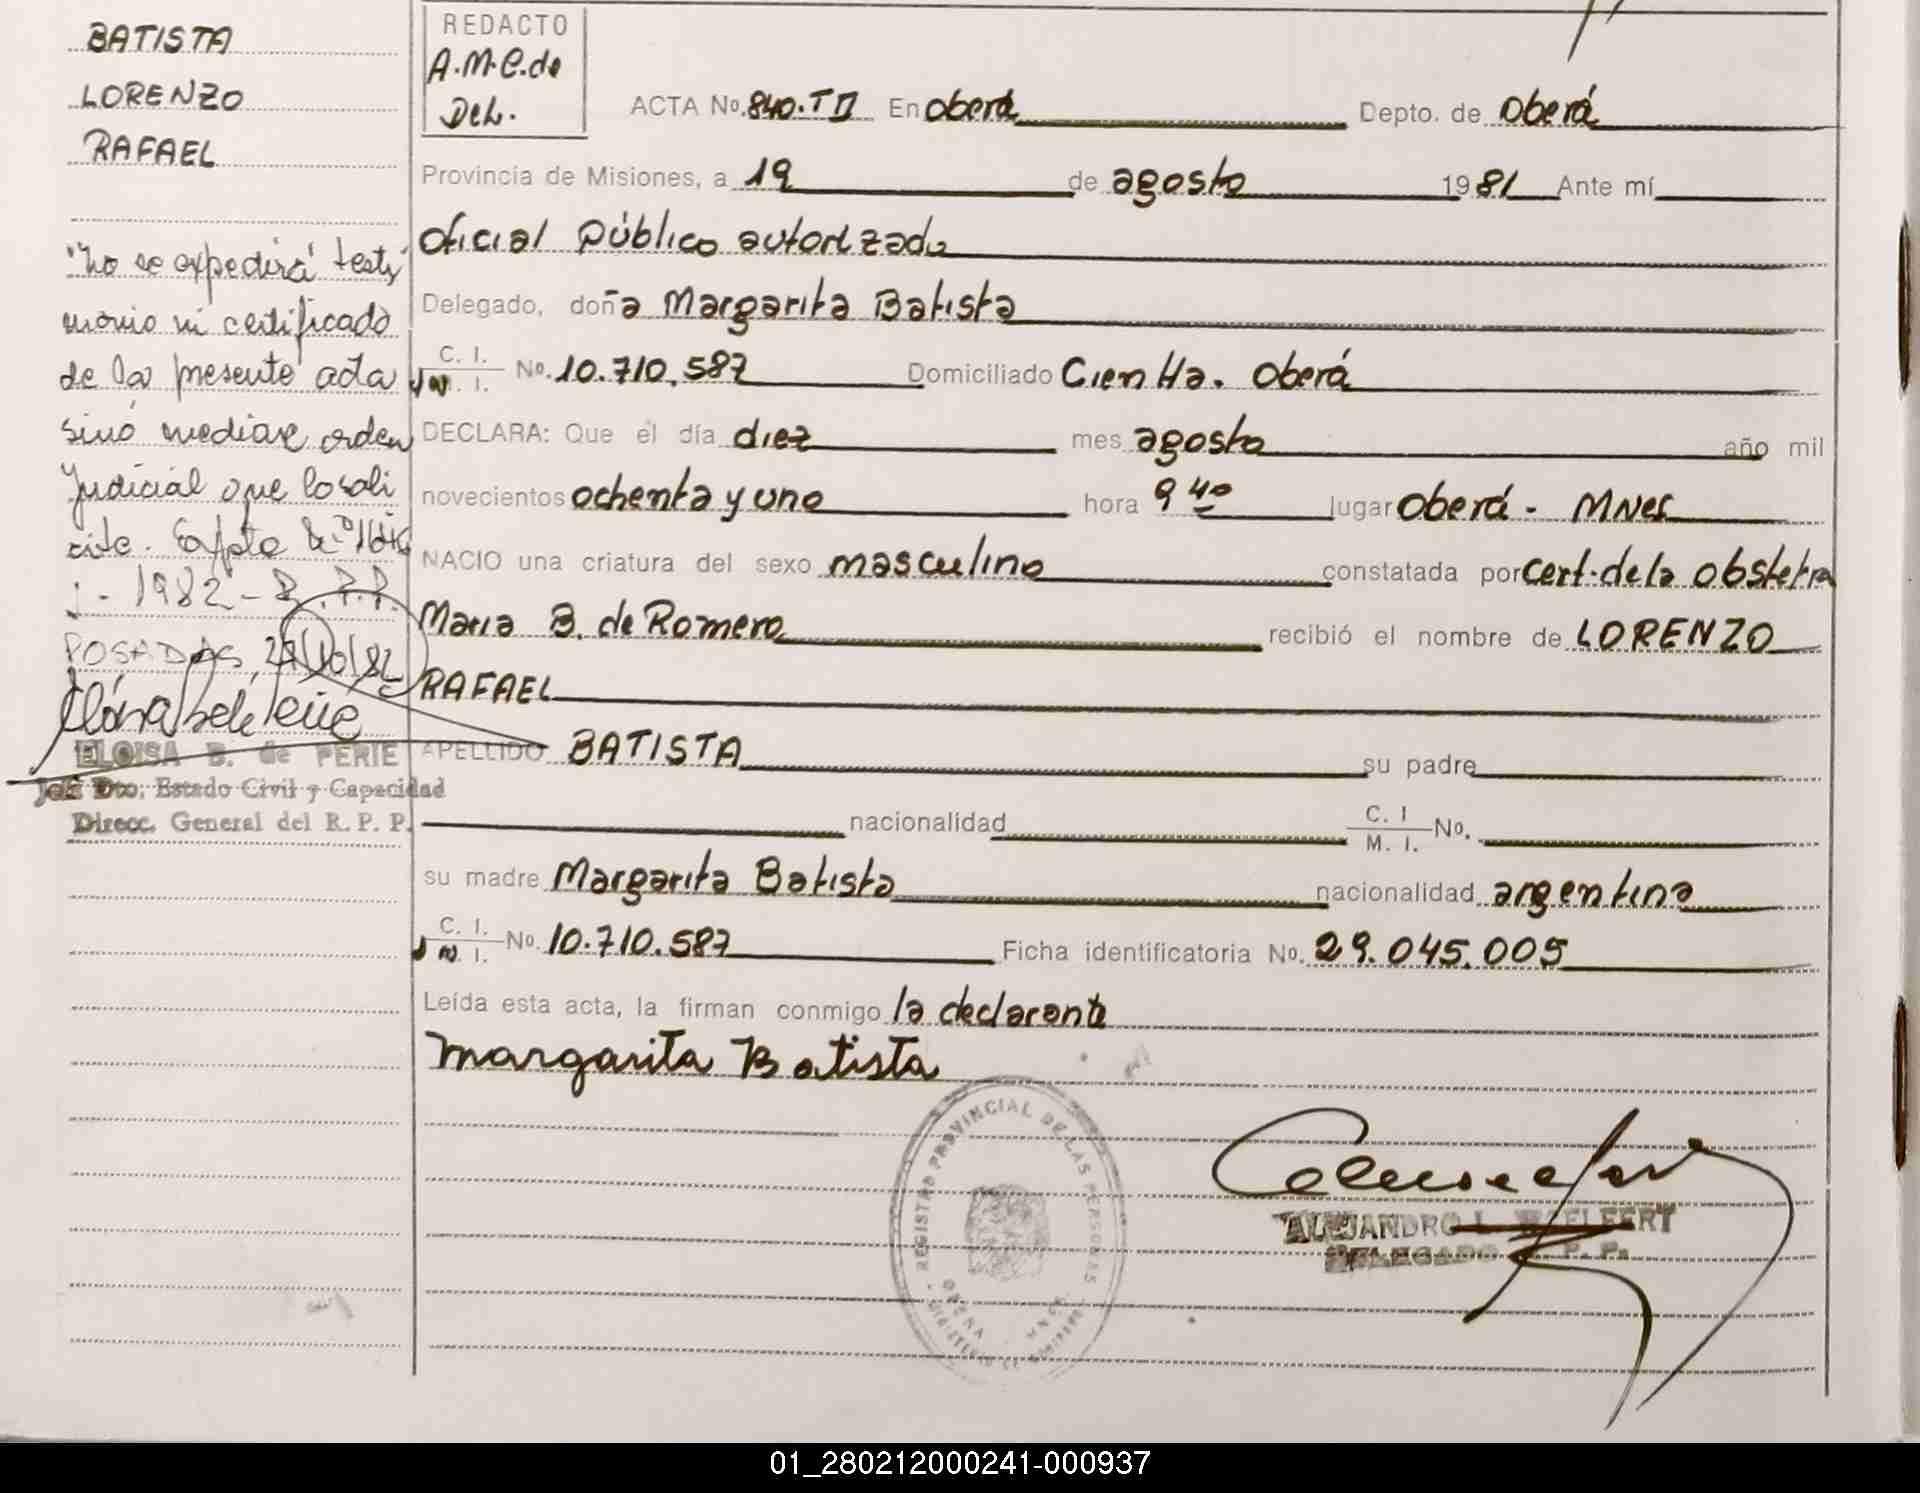 BATISTA
LORENZO
RAFAEL
"No se expedirá testi
monio ni certificado
de la presente acta
sinó mediare orden
Judicial que lo soli
cite. Expte
1982 - R.P.P.
POSADAS, 27/10/82
ELOISA B. de PERIE
Jefe Dto. Estado Civil y Capacidad
Direcc. General del R. P. P.
REDACTO
A.M.C. de
Del.
ACTA No. 840. T II En Oberá Depto. de Oberá
Provincia de Misiones, a 19 de agosto 1981 Ante mí
oficial público autorizado
Delegado, doña Margarita Batista
C. I. M. I. No. 10.710.587 Domiciliado Cien Ha. Oberá
DECLARA: Que el día diez mes agosto año mil
novecientos ochenta y uno hora 9 40 lugar Oberá - MNES
NACIO una criatura del sexo masculino constatada por cert. de la obstetra
Maria B. de Romero recibió el nombre de LORENZO
RAFAEL
APELLIDO BATISTA su padre
nacionalidad C. I M. I. No.
su madre Margarita Batista nacionalidad argentina
C. I. M. I. No. 10.710.587 Ficha identificatoria No. 29.045.005
Leída esta acta, la firman conmigo la declarante
Margarita Batista
REGISTRO PROVINCIAL DE LAS PERSONAS
ALEJANDRO L.
DELEGADO R. P. P.
01_280212000241-000937